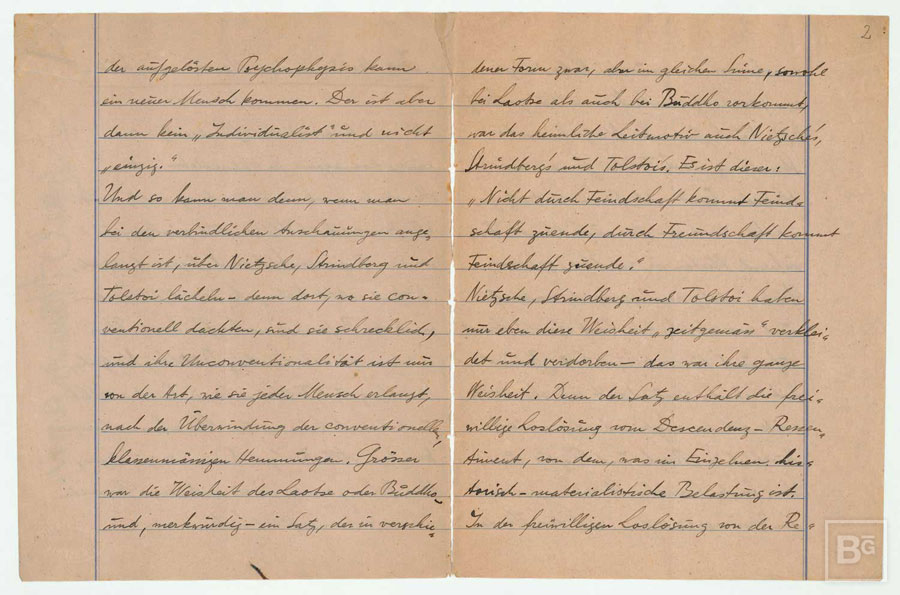 2
der aufgelösten Psychophysis kann
ein neuer Mensch kommen. Der ist aber
dann kein „Individualist“ und nicht
„einzig.“
Und so kann man denn, wenn man
bei den verbindlichen Anschauungen ange-
langt ist, über Nietzsche, Strindberg und
Tolstoi lächeln – denn dort, wo sie con-
ventionell dachten, sind sie schrecklich,
und ihre Unconventionalität ist nur
von der Art, wie sie jeder Mensch erlangt,
nach der Überwindung der conventionellen,
klassenmässigen Hemmungen. Grösser
war die Weisheit des Laotse oder Buddho
und, merkwürdig – ein Satz, der in verschie-
dener Form zwar, aber im gleichen Sinne, sowohl
bei Laotse als auch bei Buddho vorkommt,
war das heimliche Leitmotiv auch Nietzsche's,
Strindberg's und Tolstoi's. Es ist dieser:
„Nicht durch Feindschaft kommt Feind-
schaft zuende, durch Freundschaft kommt
Feindschaft zuende.“
Nietzsche, Strindberg und Tolstoi haben
nur eben diese Weisheit „zeitgemäss“ verklei-
det und verdorben – das war ihre ganze
Weisheit. Denn der Satz enthält die frei-
willige Loslösung vom Descendenz-Ressen-
timent, von dem, was im Einzelnen his-
torisch-materialistische Belastung ist.
In der freiwilligen Loslösung von der Re-
BG